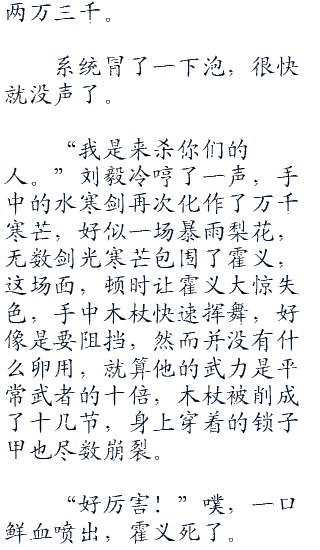 两万三千。
系统冒了一下泡，很快
就没声了。
“我是来杀你们的
人。”刘毅冷哼了一声，手
中的水寒剑再次化作了万千
寒芒，好似一场暴雨梨花，
无数剑光寒芒包围了霍义，
这场面，顿时让霍义大惊失
色，手中木杖快速挥舞，好
像是要阻挡，然而并没有什
么卵用，就算他的武力是平
常武者的十倍，木杖被削成
了十几节，身上穿着的锁子
甲也尽数崩裂。
“好厉害！”噗，一口
鲜血喷出，霍义死了。